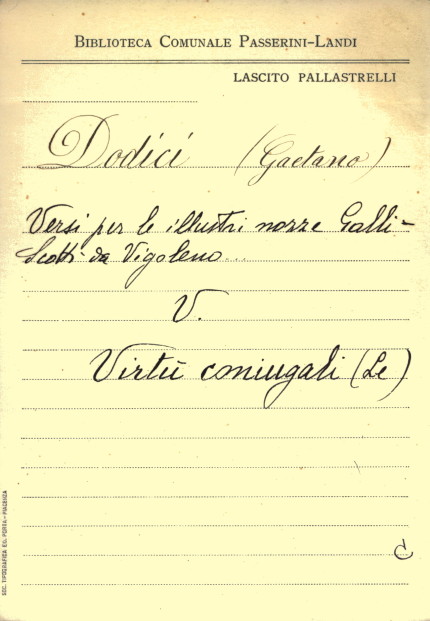 BIBLIOTECA COMUNALE PASSERINI-LANDI
LASCITO PALLASTRELLI
Dodici (Gaetano)
Versi per le illustri nozze Galli-
Scotti da Vigoleno...
V.
Virtù coniugali (Le)
C
SOC. TIPOGRAFICA EG. PORTA - PIACENZA